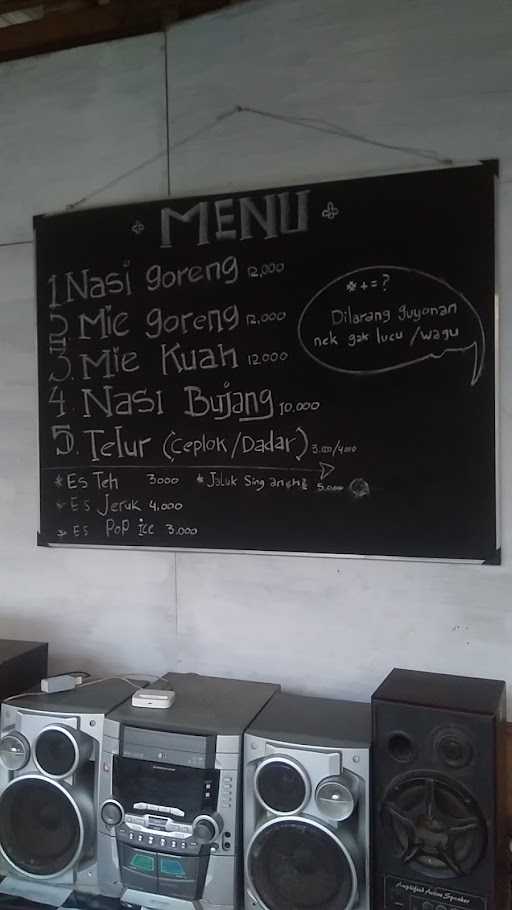 MENU
1. Nasi goreng 12,000
2. Mie goreng 12,000
3. Mie Kuah 12000
4. Nasi Bujang 10.000
5. Telur (Ceplok/Dadar) 3.000/4000
* + = ?
Dilarang guyonan
nek gak lucu /wagu
* Es Teh 3000
* Jaluk Sing aneh2 5.000
* Es Jeruk 4.000
* Es Pop ice 3.000
Amplified Active Speaker